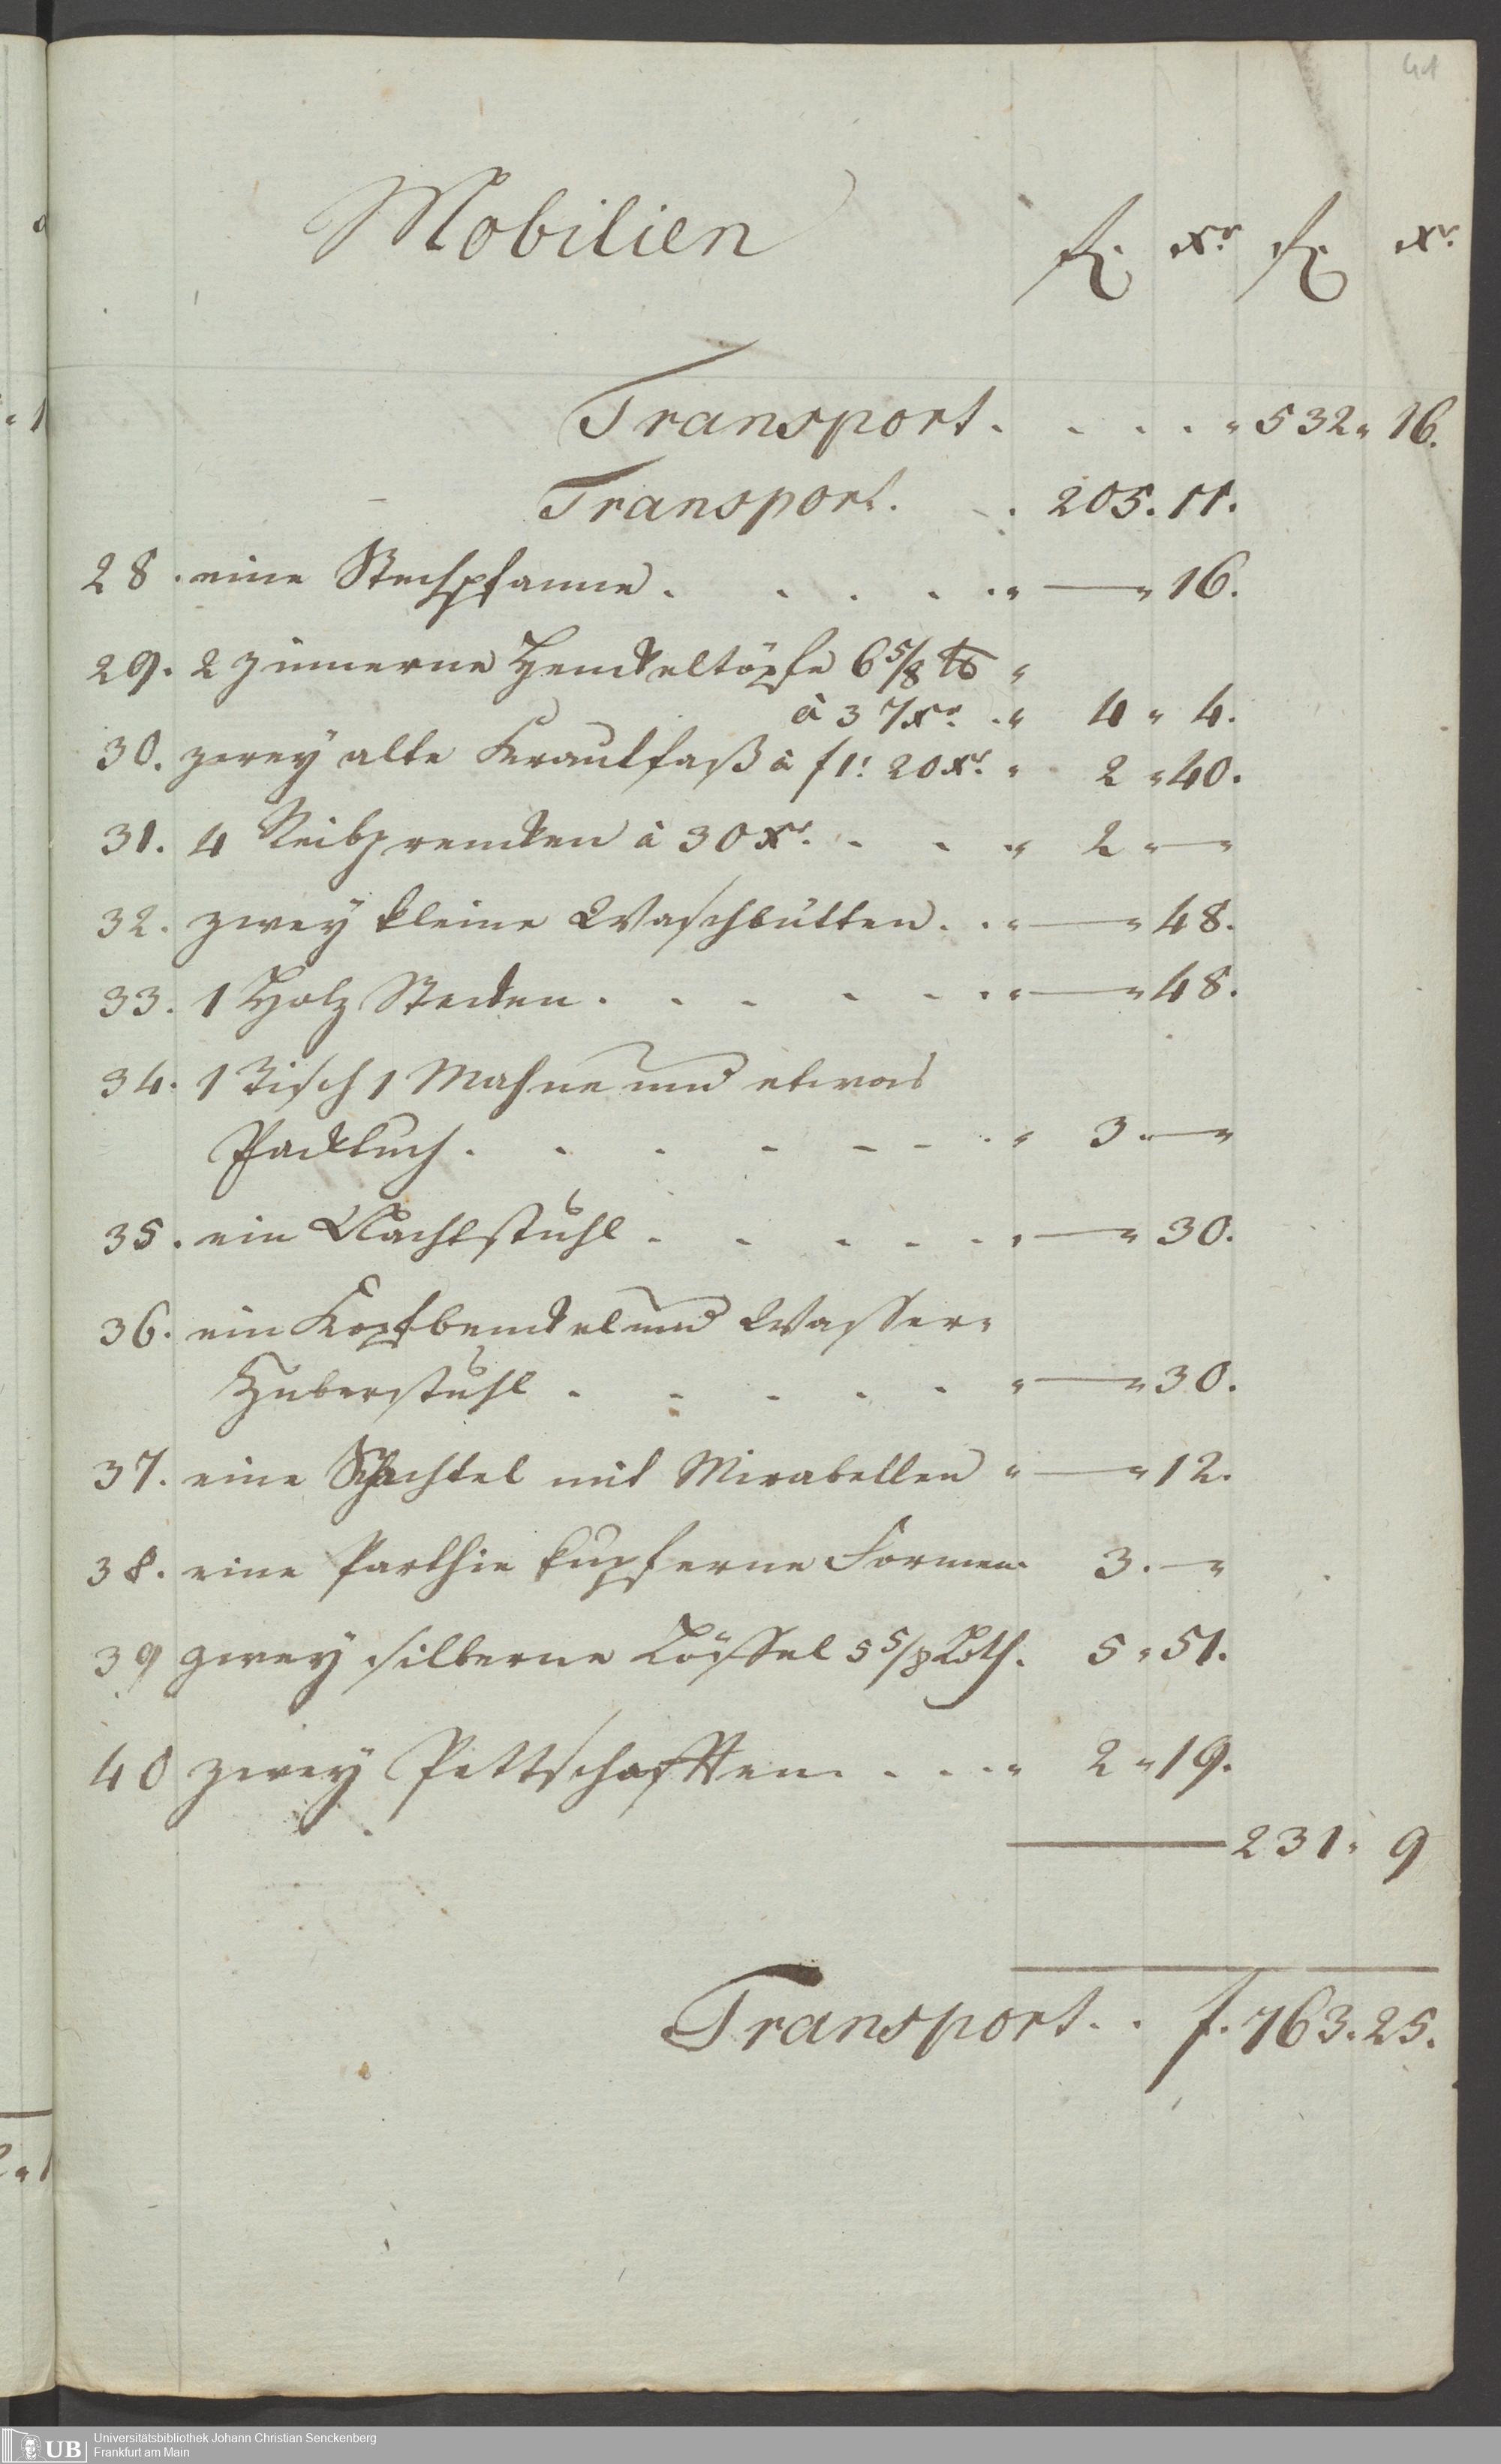 41
Mobilien fl. xr. fl. xr.
Transport. . . . . " 532 " 16.
Transport. . . 205. 11.
28. eine Stechpfanne. . . . . " — " 16.
29. 2 zinnerne Henckeltöpfe 6 5/8 ℔ "
à 37 xr. . " 4 " 4.
30. zwey alte Krautfaß à f 1: 20 xr. " 2 " 40.
31. 4 à 30 xr. . . . " 2 " — "
32. zwey kleine Waschbütten. . . " — " 48.
33. 1 Holz Stecken. . . . . . " — " 48.
34. 1 Tisch 1 Mahne und etwas
Packtuch. . . . . . . " 3 " — "
35. ein Nachtstuhl. . . . . . " — " 30.
36. ein und Wasser-
Zuberstuhl . . . . . " — " 30.
37. eine Schachtel mit Mirabellen " — " 12.
38. eine Parthie kupferne Formen. 3. — "
39 zwey silberne Löffel 5 5/8 Loth. 5 " 51.
40 zwey Pettschafften. . . . " 2 " 19.
— 231 " 9
Transport. . f. 763. 25.
UB Universitätsbibliothek Johann Christian Senckenberg
Frankfurt am Main